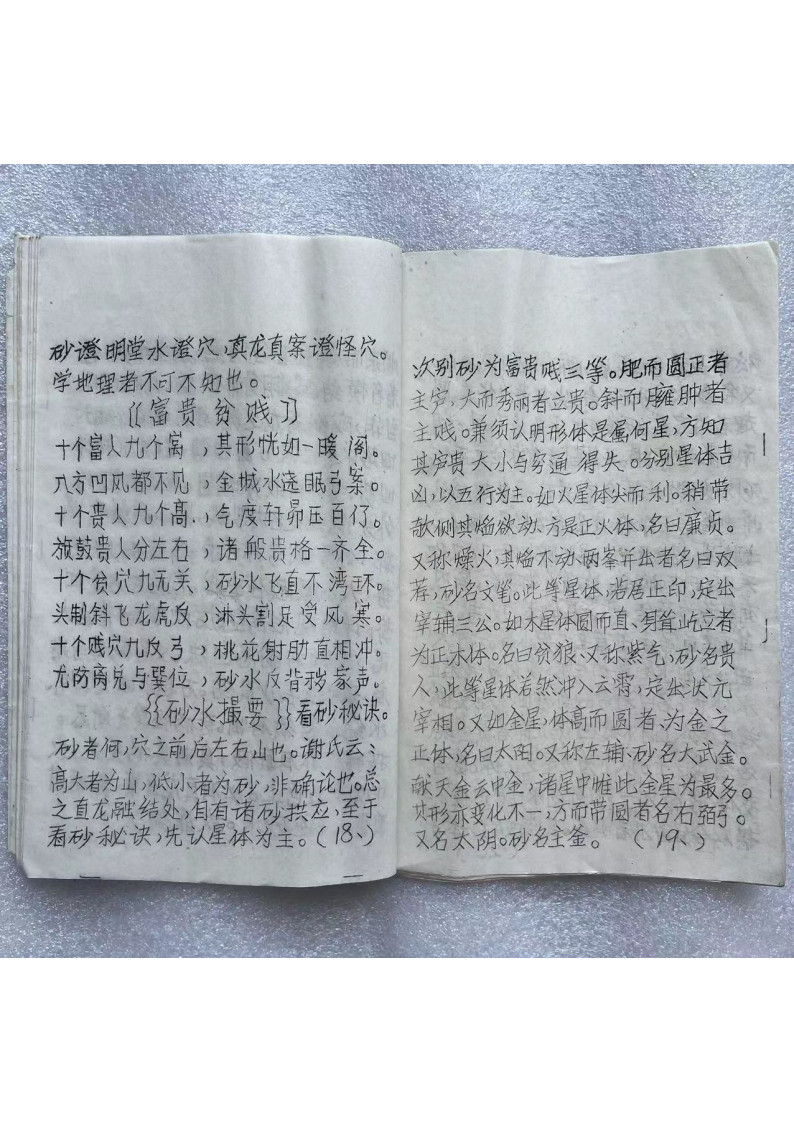 砂證明堂水證穴，真龙真案證怪穴。
学地理者不可不知也。
〖富贵贫贱〗
十个富人九个窝，其形恍如一暖阁。
八方凹风都不见，金城水遶眠弓案。
十个贵人九个高，气度轩昴压百仃。
旗鼓贵人分左右，诸般贵格一齐全。
十个贫穴九无关，砂水飞直不湾环。
头制斜飞龙虎反，淋头割足受风寒。
十个贱穴九反弓，桃花射肋直相冲。
尤防离兑与巽位，砂水反背秽家声。
〖砂水撮要〗看砂秘诀。
砂者何，穴之前后左右山也。谢氏云：
高大者为山，低小者为砂，非确论也。总
之直龙融结处，自有诸砂拱应，至于
看砂秘诀，先认星体为主。（18、）
次别砂为富贵贱三等。肥而圆正者
主富，大而秀丽者立贵。斜而臃肿者
主贱。兼须认明形体是属何星，方知
其富贵大小与穷通得失。分别星体吉
凶，以五行为主。如火星体尖而利。稍带
欹侧其焔欲动，方是正火体，名曰廉贞。
又称燥火，其焔不动，两峯并出者名曰双
荐，砂名文笔。此等星体，若居正印，定出
宰辅三公。如木星体圆而直、身耸屹立者
为正木体。名曰贫狼、又称紫气，砂名贵
人，此等星体若然冲入云霄，定出状元
宰相。又如金星，体高而圆者、为金之
正体，名曰太阳。又称左辅、砂名大武金。
献天金云中金，诸星中惟此金星为最多。
其形亦变化不一，方而带圆者名右弼。
又名太阴。砂名主釜。（19、）